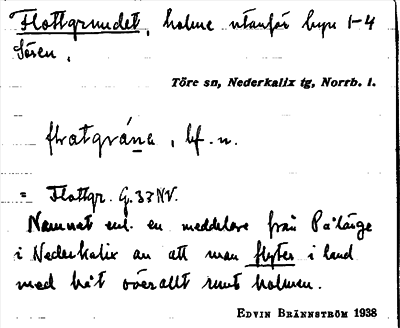 Flottgrundet, holme utanför byn 1-4
Sören.
Töre sn, Nederkalix tg, Norrb. l.
flɷtgrṳ́na, bf. n.
= Flottgr. G. 33 NV.
Namnet enl. en meddelare från Pålänge
i Nederkalix av att man flyter i land
med båt överallt runt holmen.
EDVIN BRÄNNSTRÖM 1938